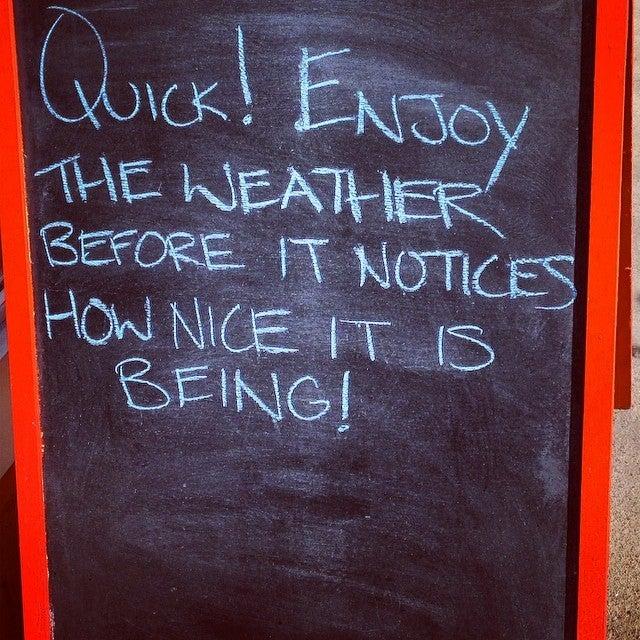 QUICK! ENJOY
THE WEATHER
BEFORE IT NOTICES
HOW NICE IT IS
BEING!